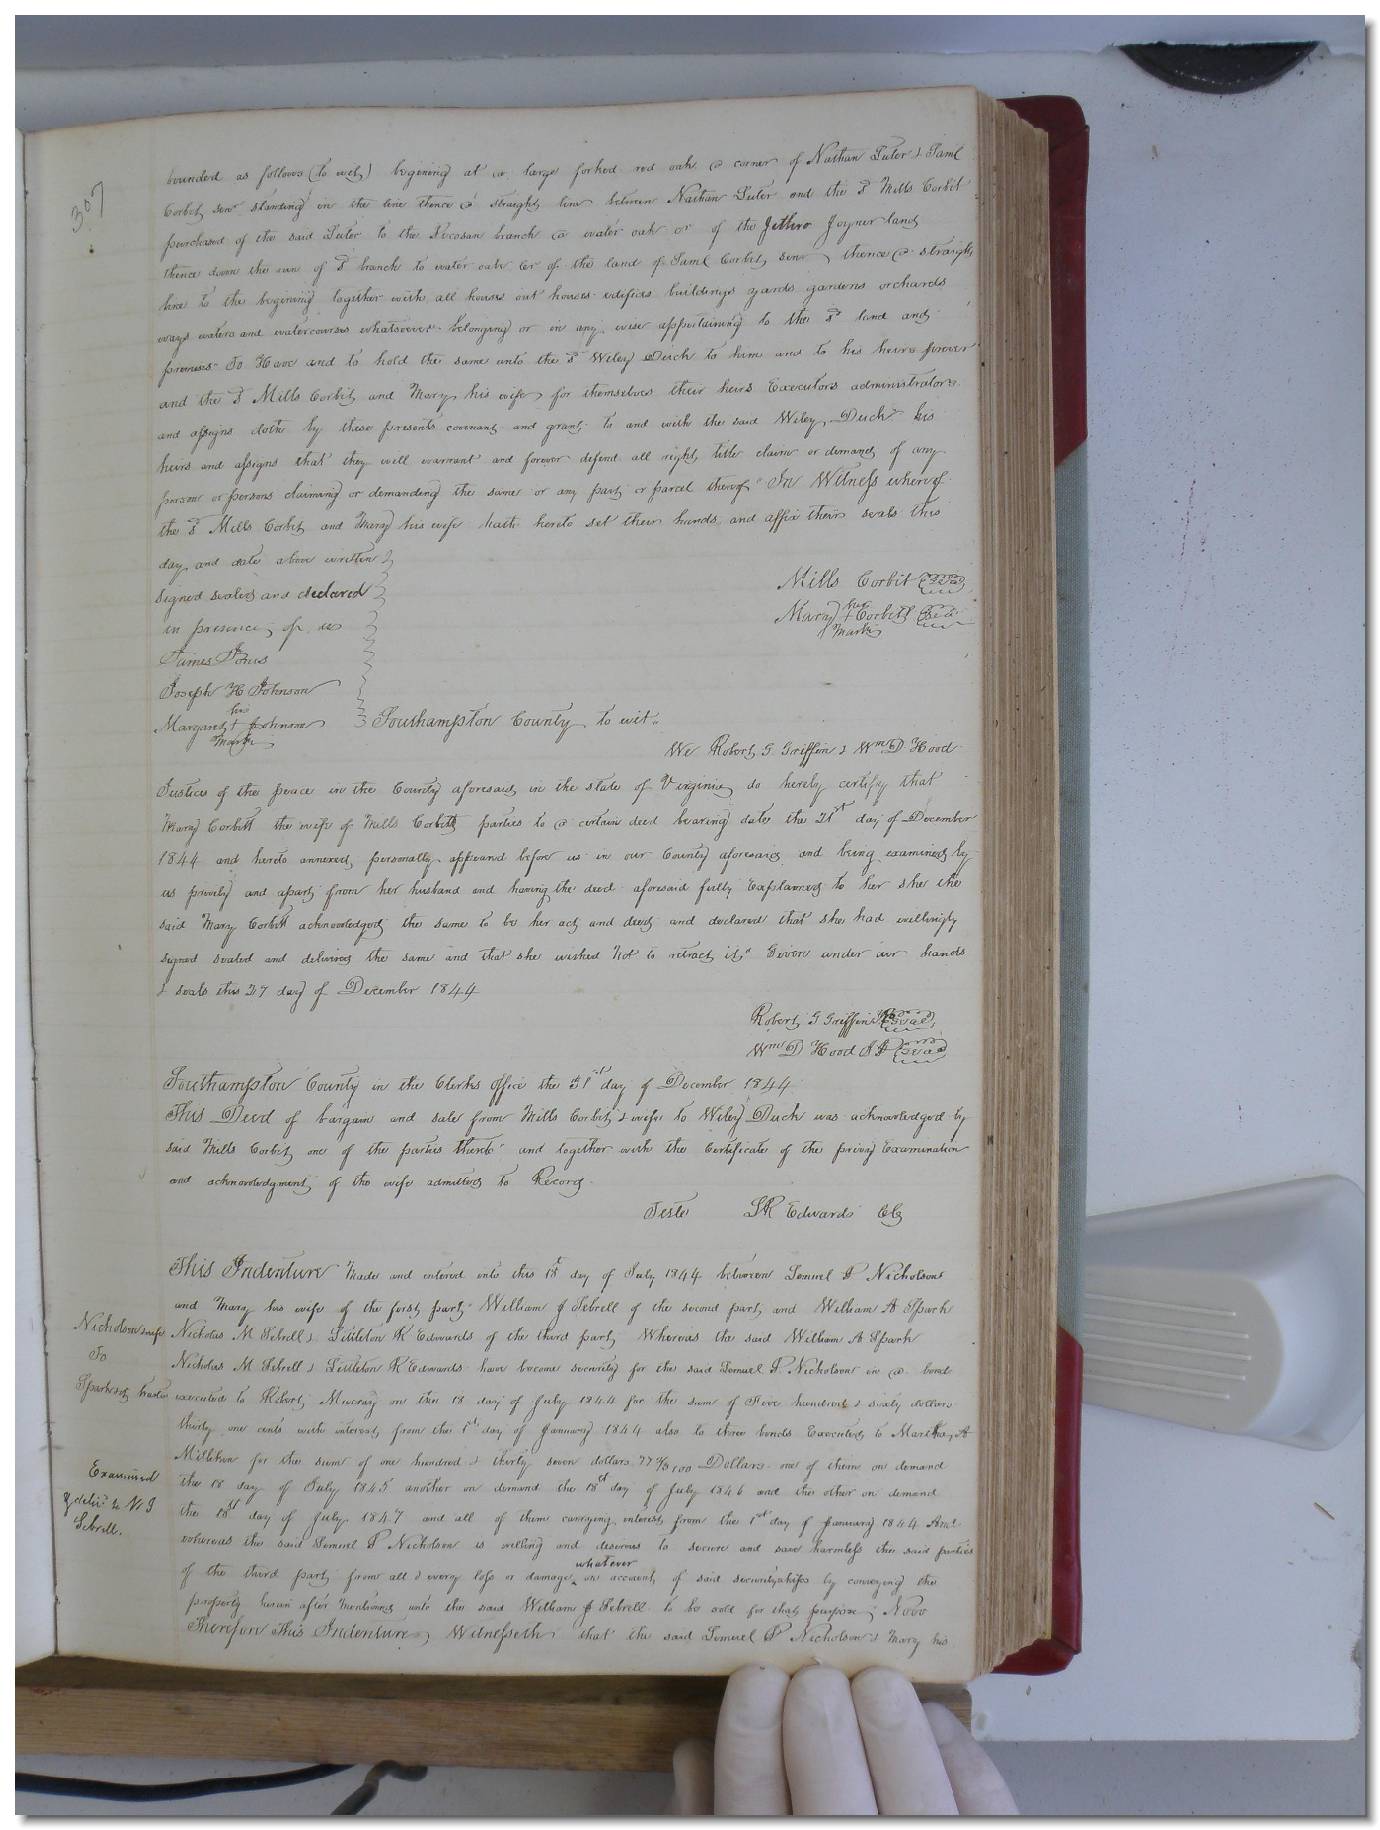 307
bounded as follows (to wit) begining at a large forked red oak a corner of Nathan Luter & Saml
Corbit senr standing in the line thence a straight line between Nathan Luter and the sd Mills Corbit
purchased of the said Luter to the Pocosan branch a water oak cr of the Jethro Joyner land
thence down the run of sd branch to water oak cr of the land of Saml Corbit senr thence a straight
line to the begining together with all houses out houses edifices buildings yards gardens orchards
ways waters and watercourses whatsoever belonging or in any wise appertaining to the sd land and
premises To Have and to hold the same unto the sd Wiley Duck to him and to his heirs forever
and the sd Mills Corbit and Mary his wife for themselves their heirs Executors administrators
and assigns doth by these presents covenant and grant to and with the said Wiley Duck his
heirs and assigns that they will warrant and forever defend all right title claim or demand of any
person or persons claiming or demanding the same or any part or parcel thereof In Witness whereof
the sd Mills Corbit and Mary his wife hath hereto set their hands and affix their seals this
day and date above written
signed sealed and declared
in presence of us
James Jones
Joseph H Johnson
his
Margaret + Johnson
Mark
Mills Corbit Seal
her
Mary + Corbitt Seal
Mark
Southampton County to wit
We Robert G. Griffin & Wm D. Hood
Justices of the peace in the County aforesaid in the state of Virginia do hereby certify that
Mary Corbitt the wife of Mills Corbitt parties to a certain deed bearing date the 21st day of December
1844 and hereto annexed, personally appeared before us in our County aforesaid and being examined by
us privily and apart from her husband and having the deed aforesaid fully Explained to her she the
said Mary Corbitt acknowledged the same to be her act and deed and declared that she had willingly
signed sealed and delivered the same and that she wished not to retract it Given under our hands
& seals this 27 day of December 1844
Robert G Griffin Seal
Wm D Hood JP Seal
Southampton County in the Clerks office the 31st day of December 1844
This Deed of bargain and sale from Mills Corbit & wife to Wiley Duck was acknowledged by
said Mills Corbit one of the parties thereto and together with the Certificate of the privy Examination
and acknowledgment of the wife admitted to Record
Teste LR Edwards Clk
This Indenture Made and entered into this 18 day of July 1844 between Lemuel P Nicholson
and Mary his wife of the first part William J Sebrell of the second part and William A Spark
Nicholas M Sebrell & Littleton R Edwards of the third part Whereas the said William A Spark
Nicholas M Sebrell & Littleton R Edwards have become security for the said Lemuel P. Nicholson in a bond
executed to Robert Murray on the 18 day of July 1844 for the sum of Five hundred & sixty dollars
thirty one cents with interest from the 1st day of January 1844 also to three bonds Executed to Martha A
Millikin for the sum of one hundred & thirty seven dollars 77 /100 Dollars one of them on demand
the 18 day of July 1845 another on demand the 18st day of July 1846 and the other on demand
the 18st day of July 1847 and all of them carrying interest from the 1st day of January 1844 And
whereas the said Lemuel P Nicholson is willing and desirous to secure and save harmless the said parties
whatever
of the third part from all & every loss or damage on account of said securityships by conveying the
property herein after mentioned unto the said William J Sebrell to be sold for that purpose; Now
Therefore This Indenture Witnesseth that the said Lemuel P Nicholson & Mary his
Nicholson & wife
To
Spark trustee
Examined
& deliv to W J
Sebrell.